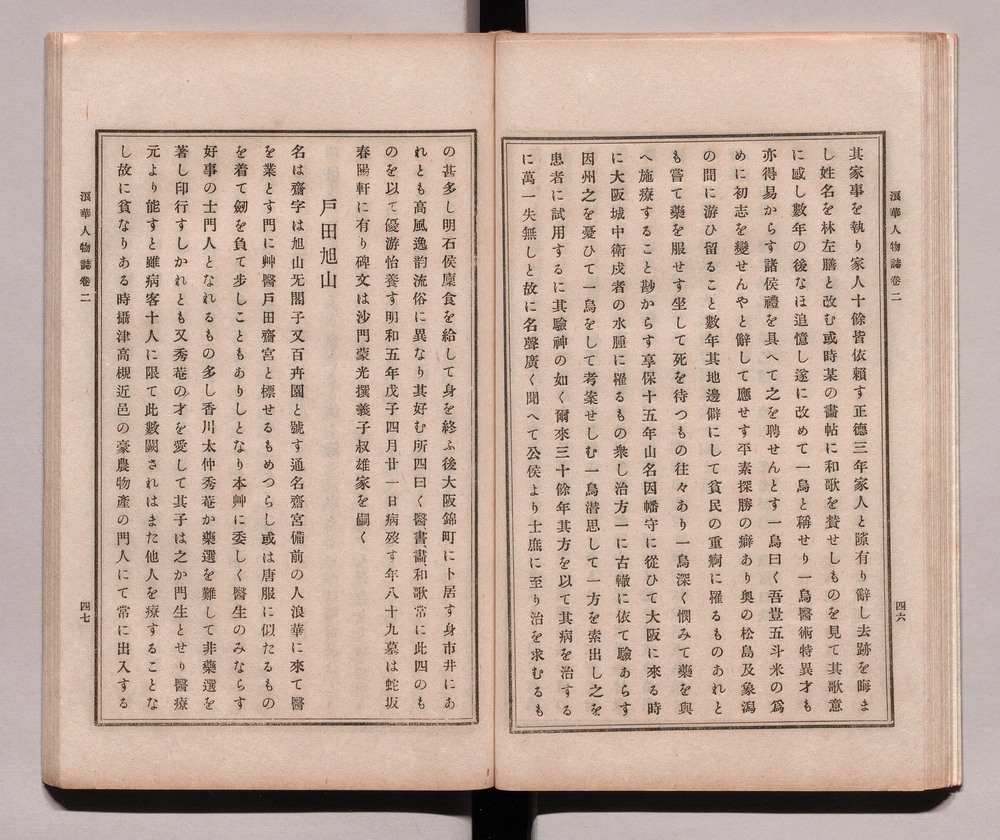 浪華人物誌卷二
四六
其家事を執り家人十餘皆依賴す正德三年家人と隙有り辭し去跡を晦ま
し姓名を林左膳と改む或時某の畵帖に和歌を賛せしものを見て其歌意
に感し數年の後なほ追憶し遂に改めて一鳥と稱せり一鳥醫術特異才も
亦得易からす諸侯禮を具へて之を聘せんとす一鳥曰く吾豈五斗米の爲
めに初志を變せんやと辭して應せす平素探勝の癖あり奥の松島及象潟
の間に游ひ留ること數年其地邊僻にして貧民の重痾に罹るものあれと
も嘗て藥を服せす坐して死を待つもの往々あり一鳥深く憫みて藥を與
へ施療すること尠からす享保十五年山名因幡守に從ひて大阪に來る時
に大阪城中衛戍者の水腫に罹るもの衆し治方一に古轍に依て驗あらす
因州之を憂ひて一鳥をして考案せしむ一鳥潜思して一方を索出し之を
患者に試用するに其驗神の如く爾來三十餘年其方を以て其病を治する
に萬一失無しと故に名聲廣く聞へて公侯より士庶に至り治を求むるも
の甚多し明石侯廩食を給して身を終ふ後大阪錦町に卜居す身市井にあ
れとも高風逸韵流俗に異なり其好む所四曰く醫書畵和歌常に此四のも
のを以て優游怡養す明和五年戊子四月廿一日病歿す年八十九墓は蛇坂
春陽軒に有り碑文は沙門蒙光撰義子叔雄家を嗣く
戶田旭山
名は齋字は旭山无悶子又百卉園と號す通名齋宮備前の人浪華に來て醫
を業とす門に艸醫戶田齋宮と標せるもめつらし或は唐服に似たるもの
を着て劒を負て步しこともありしとなり本艸に委しく醫生のみならす
好事の士門人となれるもの多し香川太仲秀菴か藥選を難して非藥選を
著し印行すしかれとも又秀菴の才を愛して其子は之か門生とせり醫療
元より能すと雖病客十人に限て此數闕されはまた他人を療することな
し故に貧なりある時攝津高槻近邑の豪農物產の門人にて常に出入する
浪華人物誌卷二
四七